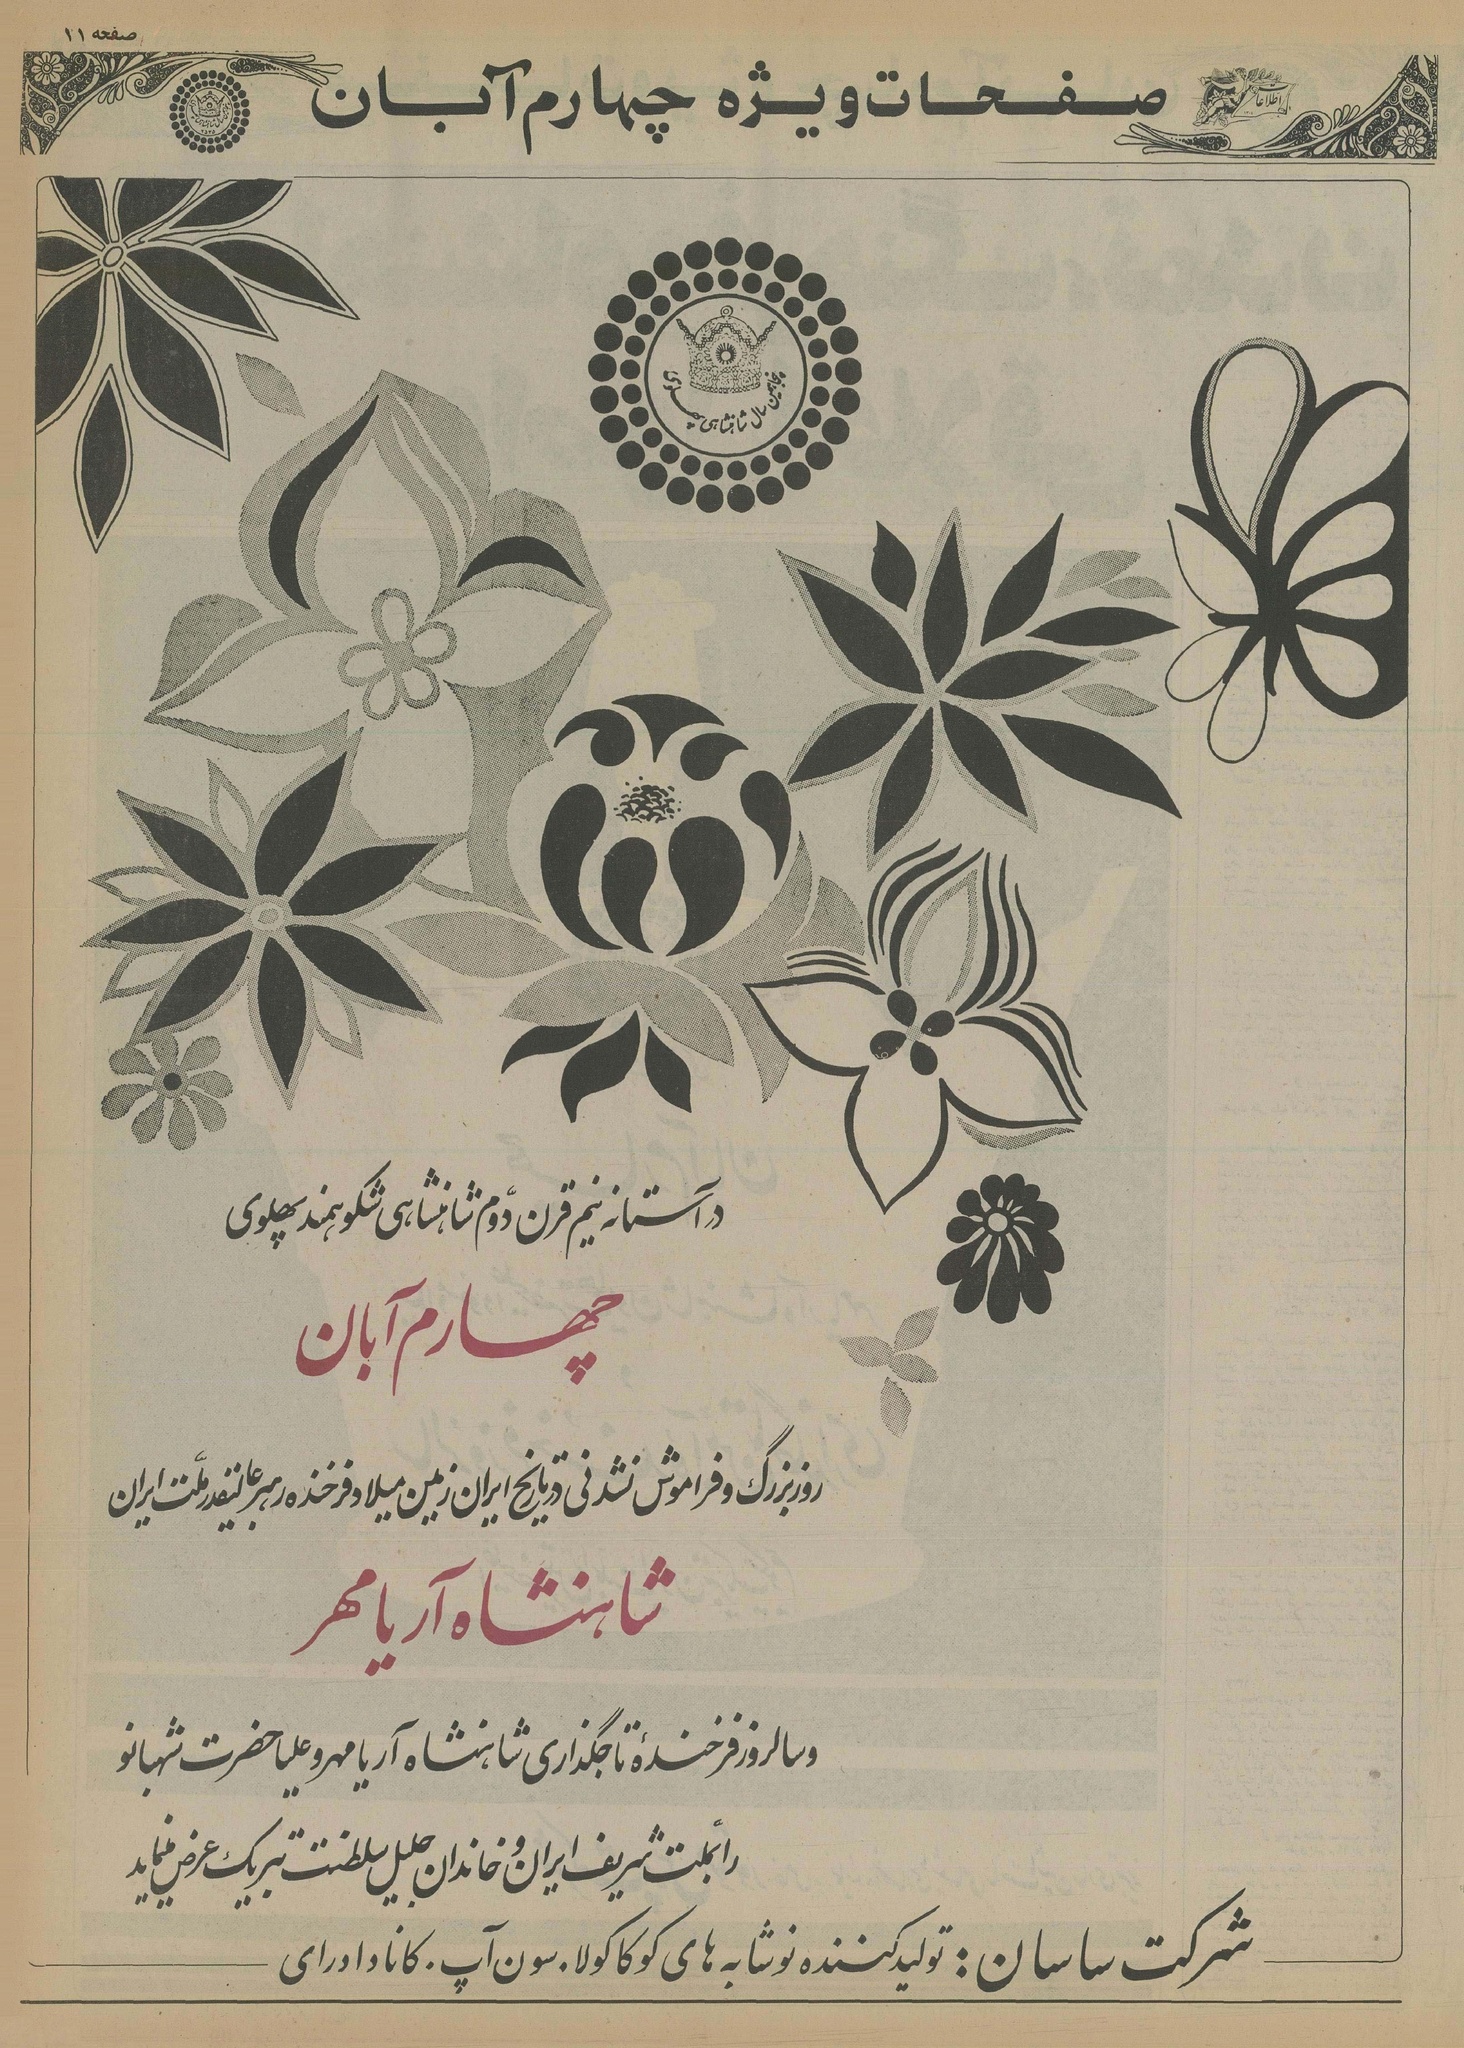 صفحه ۱۱
صفحات ویژه چهارم آبان
اطلاعات
پنجاهمین سال شاهنشاهی پهلوی
در آستانه نیم قرن دوم شاهنشاهی شکوهمند پهلوی
چهارم آبان
روز بزرگ و فراموش نشدنی در تاریخ ایران زمین میلاد فرخنده رهبر عالیقدر ملت ایران
شاهنشاه آریامهر
و سالروز فرخندهٔ تاجگذاری شاهنشاه آریامهر و علیاحضرت شهبانو
را بملت شریف ایران و خاندان جلیل سلطنت تبریک عرض مینماید
شرکت ساسان: تولیدکننده نوشابه های کوکاکولا. سون آپ. کانادا درای